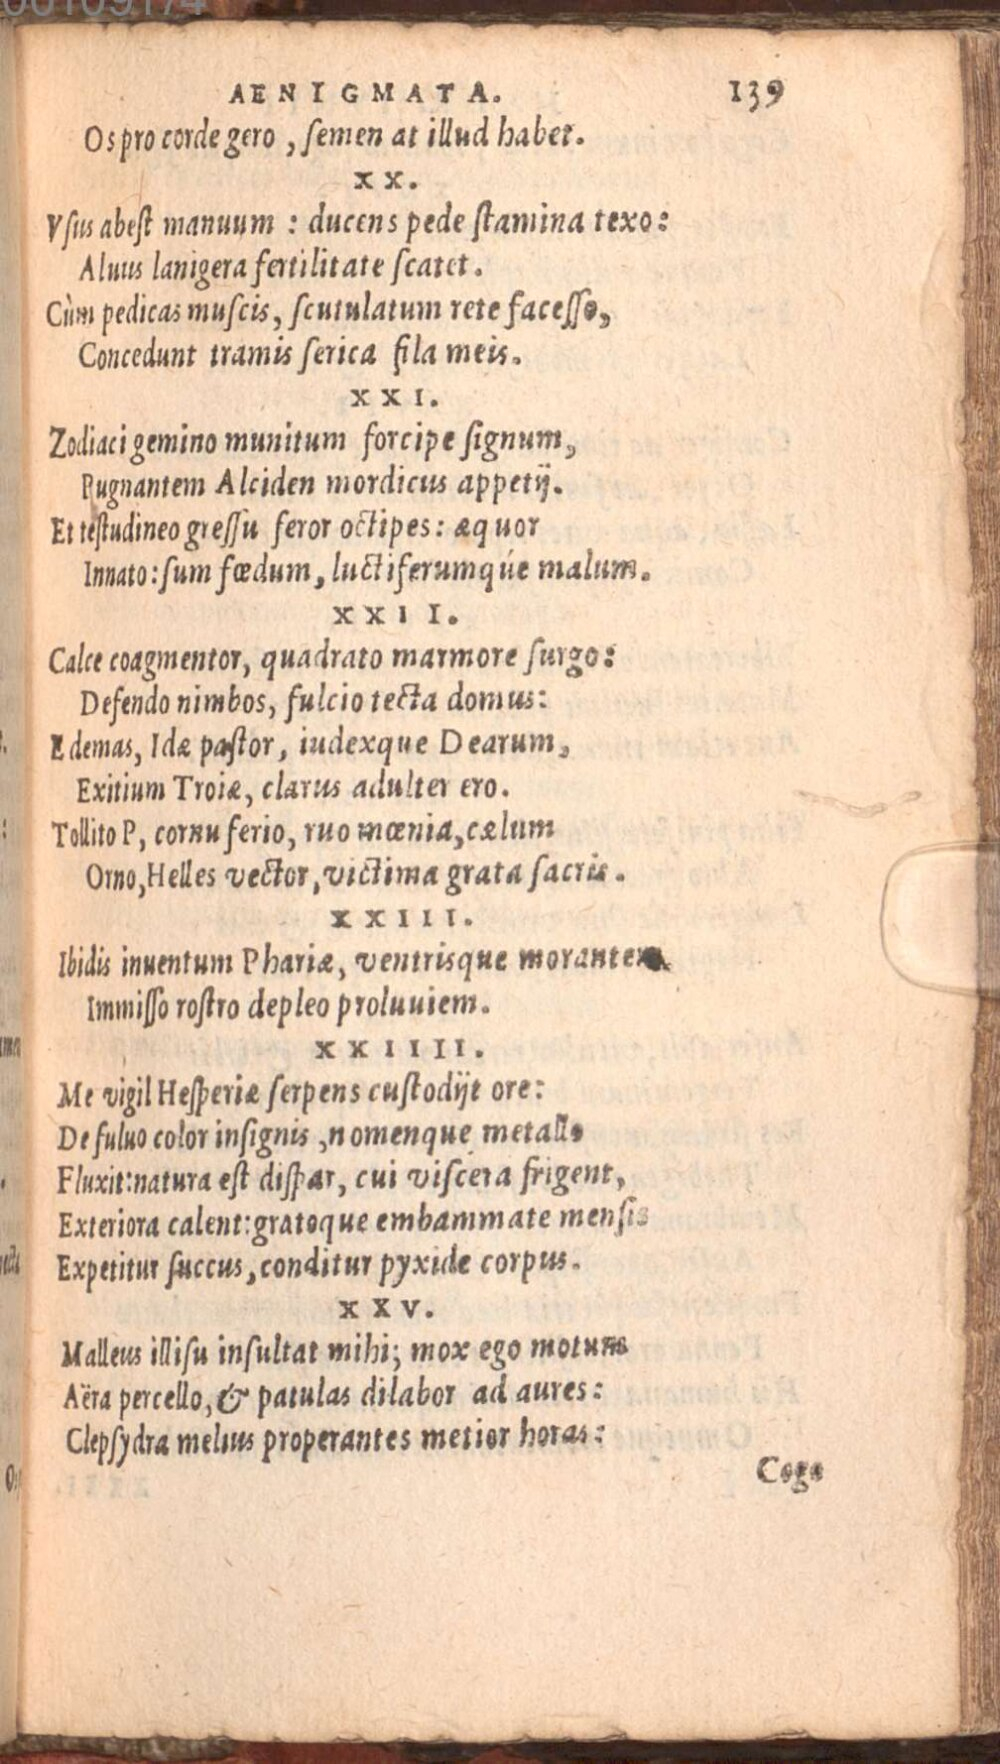 AENIGMATA. 139
Os pro corde gero, ſemen at illud habet.
XX.
Vſus abeſt manuum : ducens pede ſtamina texo:
Aluus lanigera fertilitate ſcatet.
Cùm pedicas muſcis, ſcutulatum rete faceſſo,
Concedunt tramis ſerica fila meis.
XXI.
Zodiaci gemino munitum forcipe ſignum,
Pugnantem Alciden mordicus appetij.
Et teſtudineo greſſu feror octipes: æquor
Innato: ſum fœdum, luctiferumqúe malum.
XXII.
Calce coagmentor, quadrato marmore ſurgo:
Defendo nimbos, fulcio tecta domus:
E demas, Idæ paſtor, iudexque Dearum,
Exitium Troiæ, clarus adulter ero.
Tollito P, cornu ferio, ruo mœnia, cælum
Orno, Helles vector, victima grata ſacris.
XXIII.
Ibidis inuentum Phariæ, ventrisque morantem
Immiſſo roſtro depleo proluuiem.
XXIIII.
Me vigil Heſperiæ ſerpens cuſtodijt ore:
De fuluo color inſignis, nomenque metallo
Fluxit: natura eſt diſpar, cui viſcera frigent,
Exteriora calent: gratoque embammate menſis
Expetitur ſuccus, conditur pyxide corpus.
XXV.
Malleus illiſu inſultat mihi; mox ego motum
Aëra percello, & patulas dilabor ad aures:
Clepſydra melius properantes metior horas:
Cogo